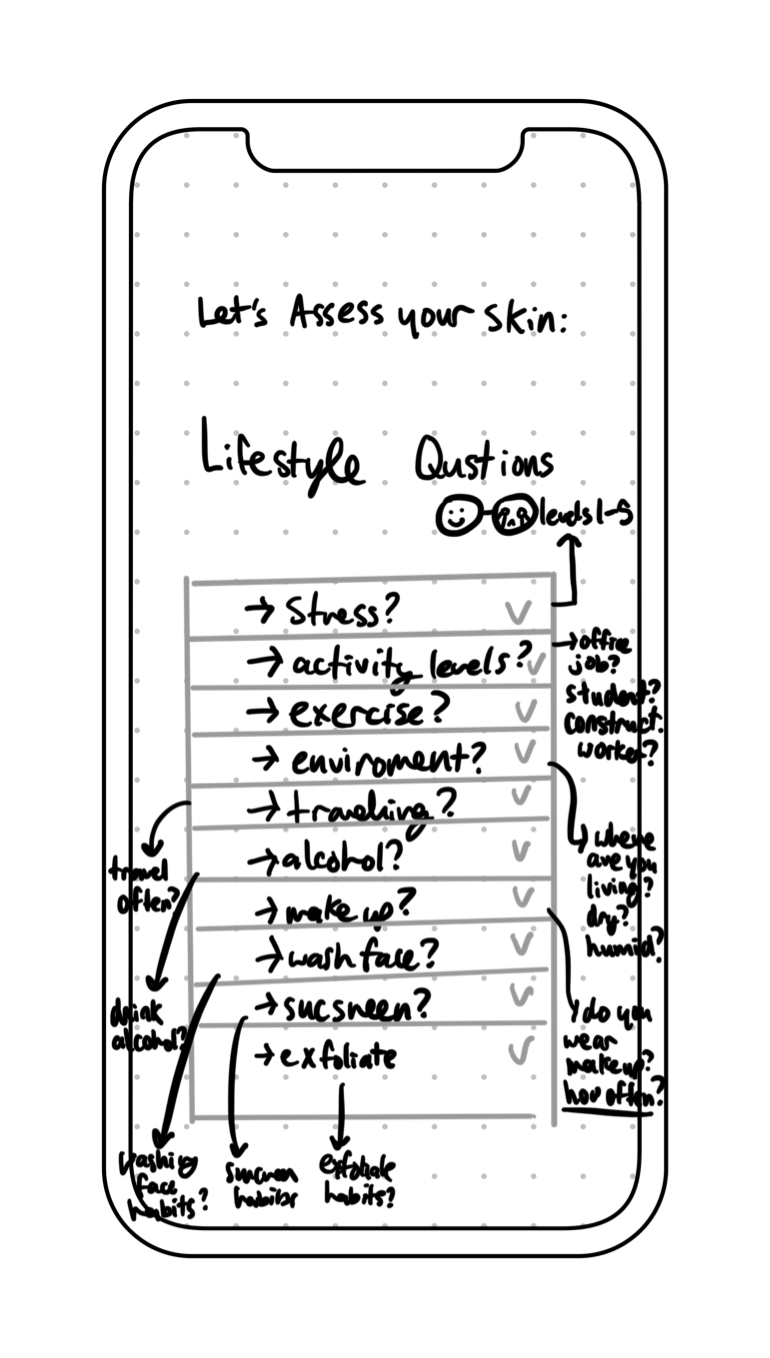 Let's Assess your skin:
Lifestyle Qustions
levels 1-5
→ Stress?
→ activity levels?
→ exercise?
→ enviroment?
→ traveling?
→ alcohol?
→ make up?
→ wash face?
→ sucsneen?
→ exfoliate
→ office
job?
student?
construct.
worker?
where
are you
living?
dry?
humid?
do you
wear
makeup?
how often?
travel
often?
drink
alcohol?
washing
face
habits?
suncreen
habits
exfoliate
habits?